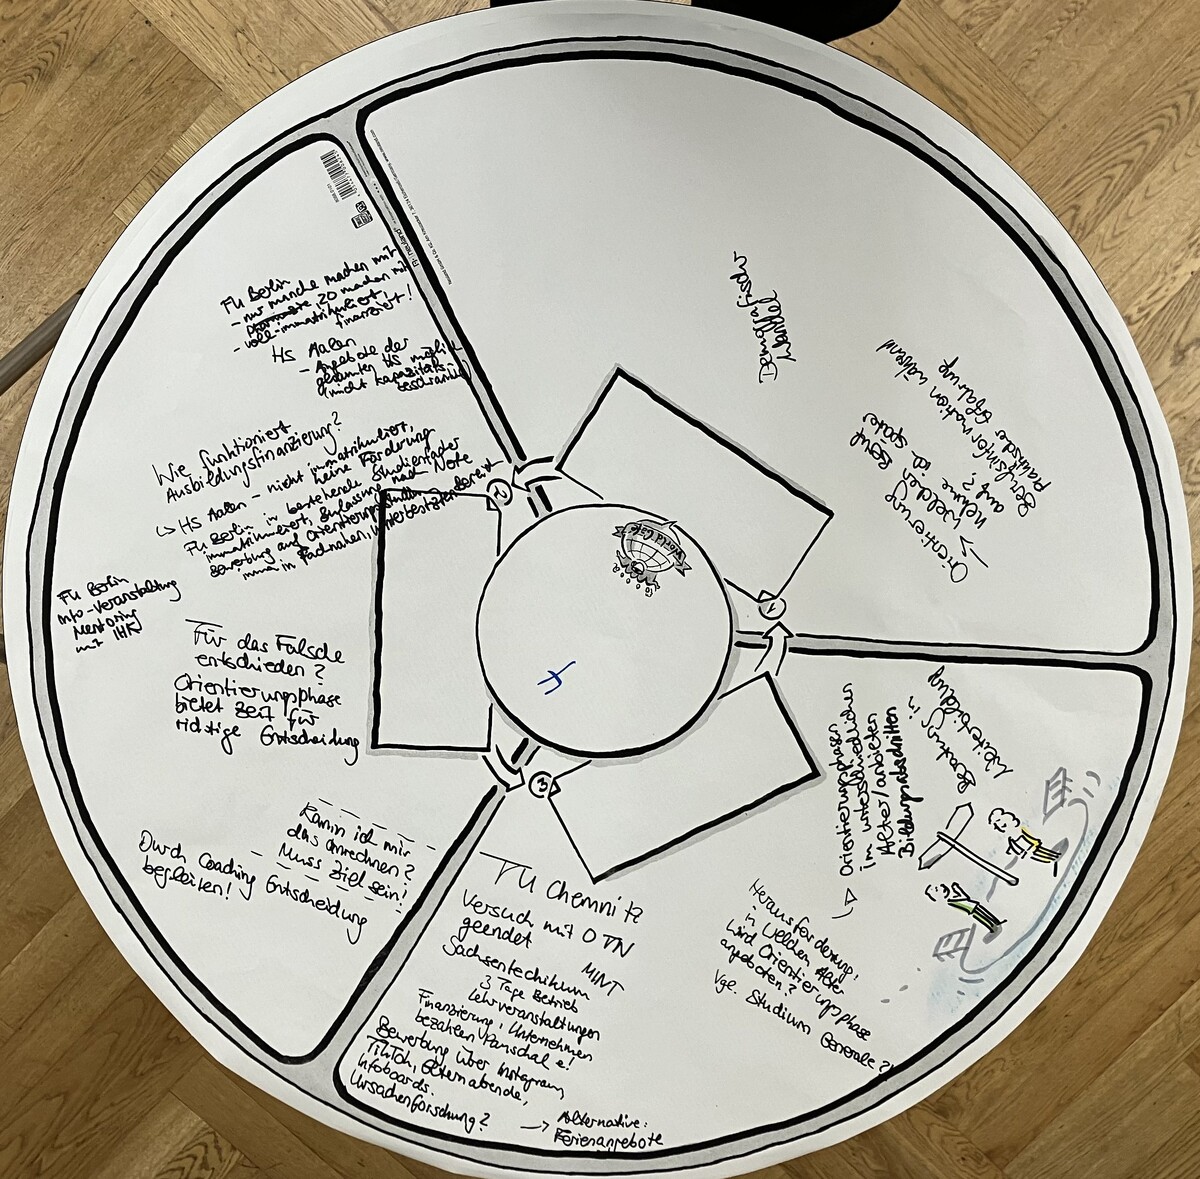 Demografischer
Wandel
Berufsinformation während
praktischer Erfahrung
Orientierung
Welchen Beruf
nehme ich später
auf?
1
World Café
FU Berlin
- nur manche machen mit
20 machen mit
- voll-immatrikuliert,
finanziert!
HS Aalen
- Angebote der
gesamten HS möglich
(nicht kapazitäts-
beschränkt)
Wie funktioniert
Ausbildungsfinanzierung?
HS Aalen - nicht immatrikuliert,
keine Förderung
FU Berlin in bestehende Studienfächer
immatrikuliert, Zulassung nach Note
Bewerbung auf Orientierungsstudium
immer in Fachnahen, unterbesetzten Bereich
2
FU Berlin
Info-Veranstaltung
Mentoring
mit IHK
Für das Falsche
entschieden?
Orientierungsphase
bietet Zeit für
richtige Entscheidung
Kann ich mir
das anrechnen?
Muss Ziel sein!
Durch Coaching Entscheidung
begleiten!
3
TU Chemnitz
Versuch mit 0 TN
geendet
MINT
Sachsentechnikum
3 Tage Betrieb
Lehrveranstaltungen
Finanzierung, Unternehmen
bezahlen Pauschale!
Bewerbung über Instagram,
TikTok, Elternabende,
Infoboards.
Ursachenforschung?
→ Alternative:
Ferienangebote
Herausforderung:
in welchem Alter
wird Orientierungsphase
angeboten?
Vgl. Studium Generale?!
Orientierungsphasen
im unterschiedlichen
Alter/anbieten
Bildungsabschnitten
Beratung in
Weiterbildung
neuland